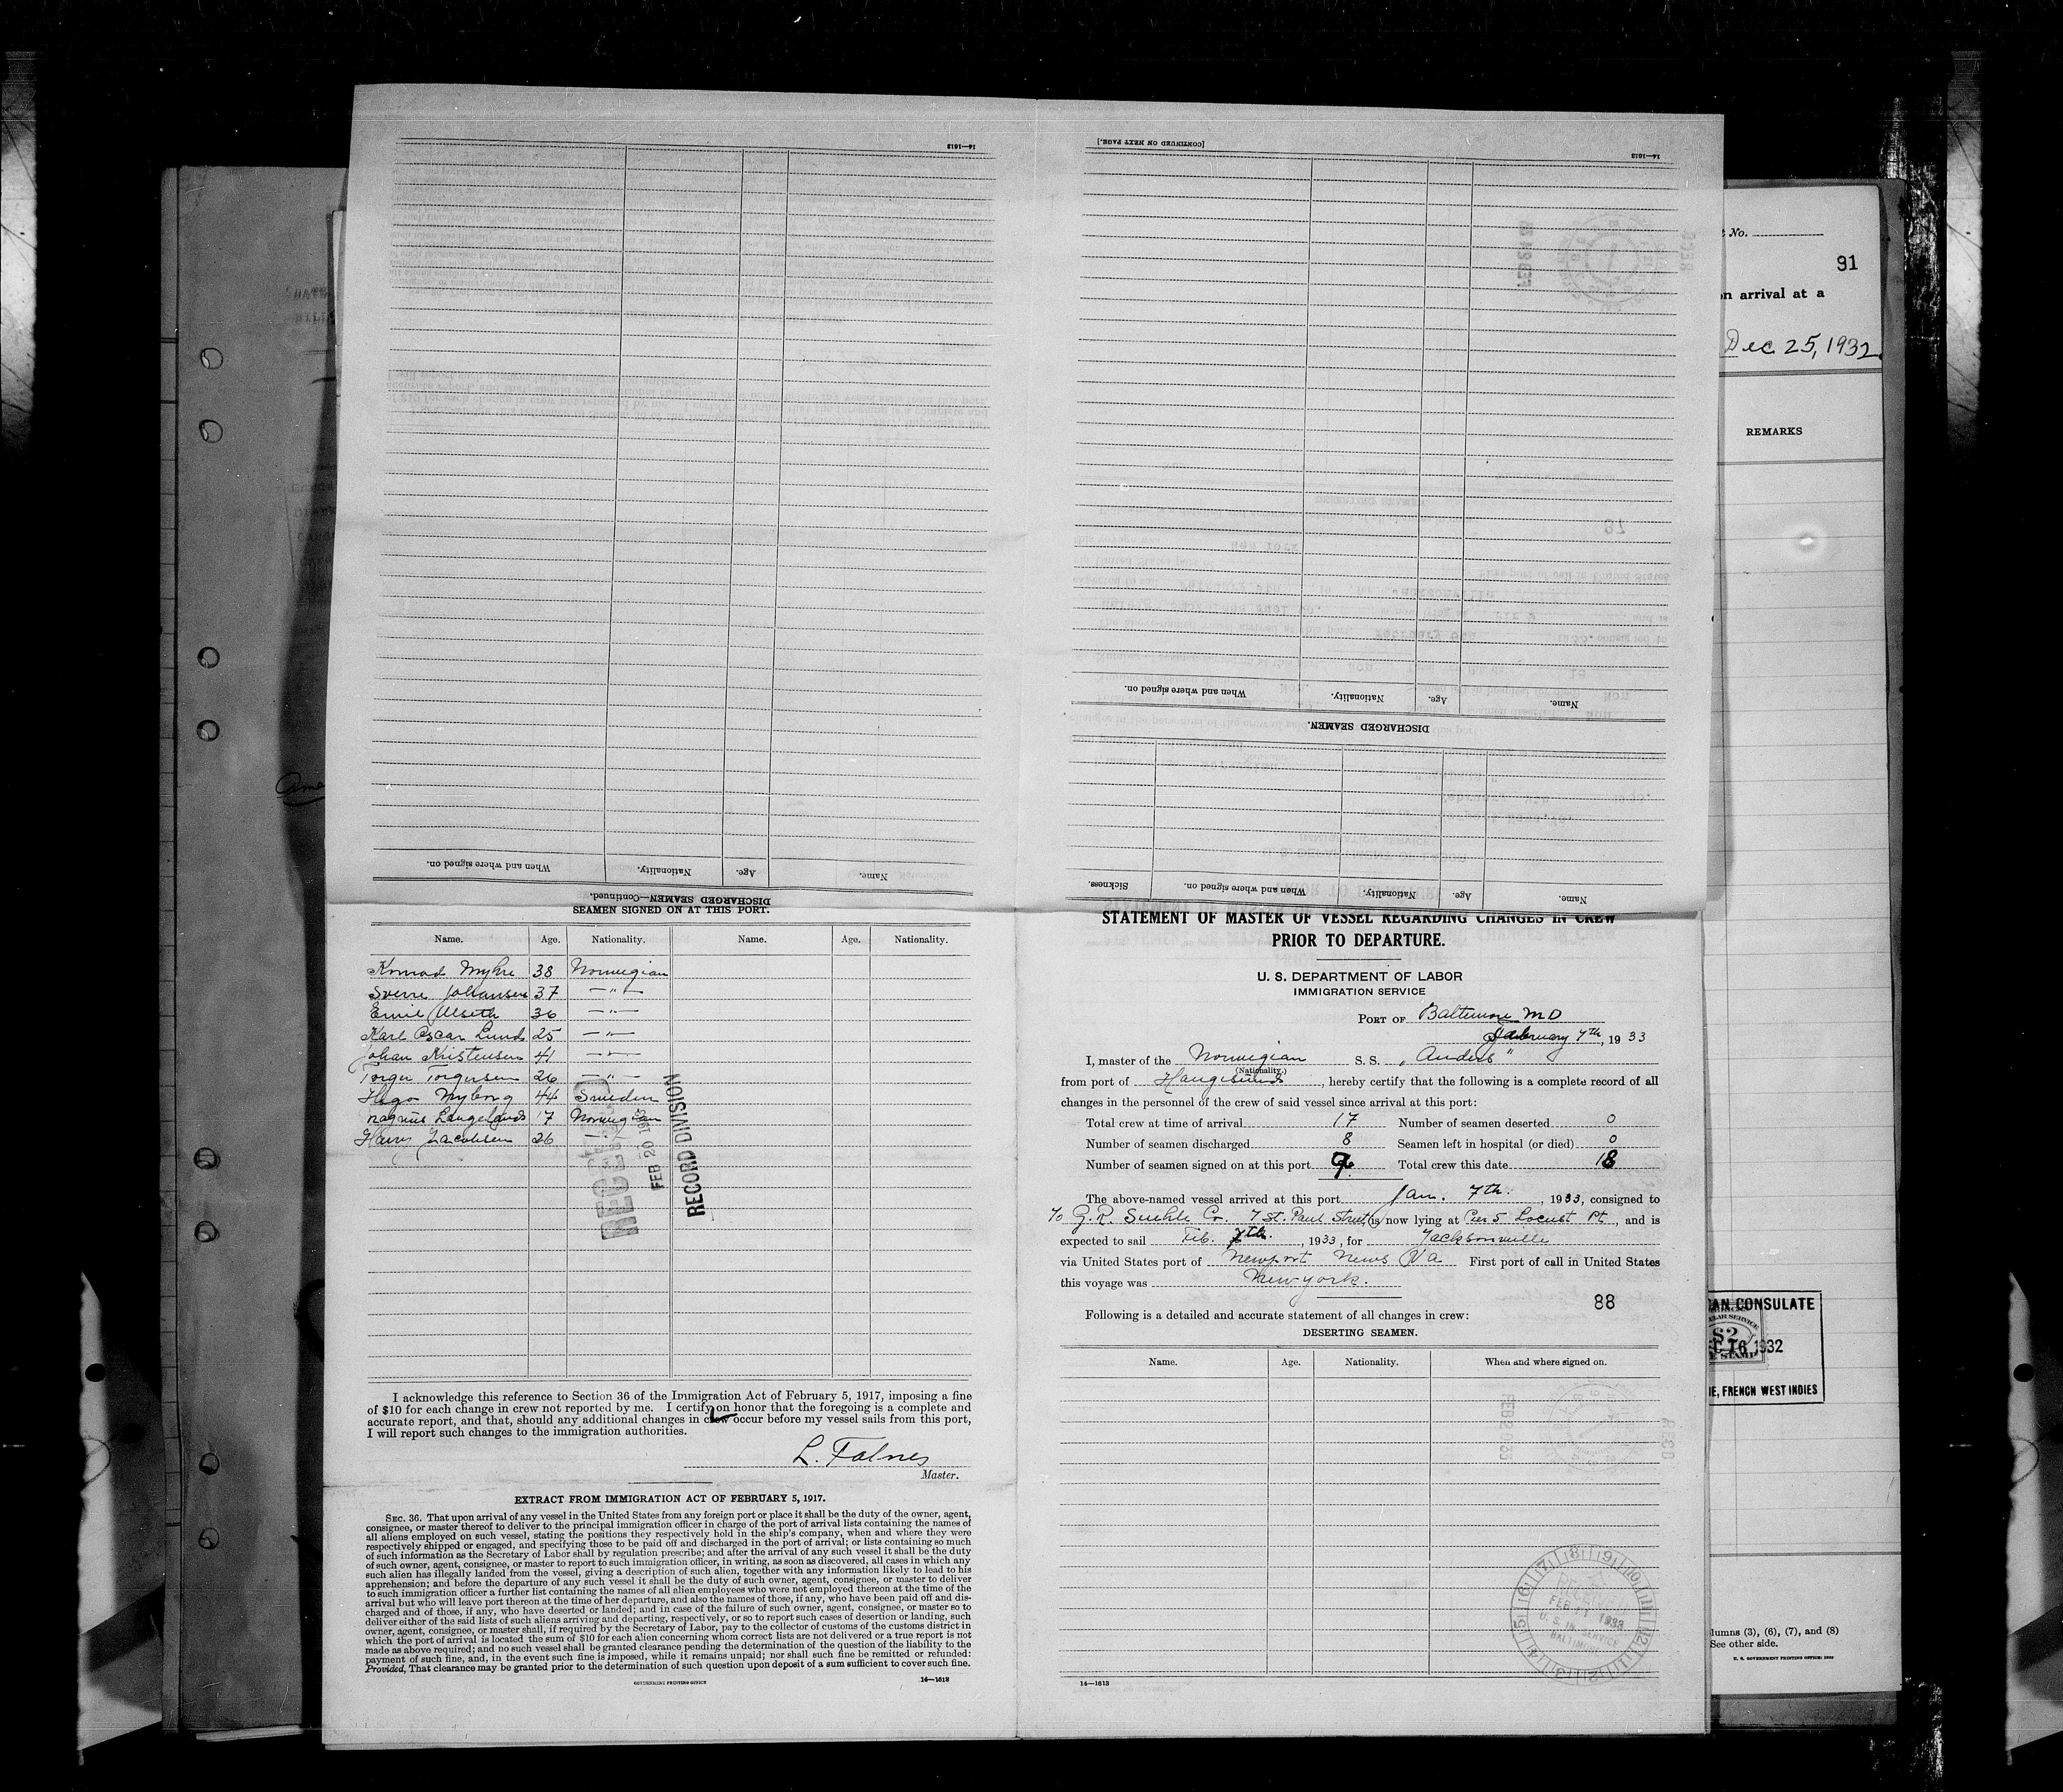 14—1613
[CONTINUED ON NEXT PAGE.]
14—1613
When and where signed on.
Nationality.
Age.
Name.
DISCHARGED SEAMEN.
Sickness.
When and where signed on.
Nationality.
Age.
Name.
When and where signed on.
Nationality.
Age.
Name.
DISCHARGED SEAMEN—Continued.
SEAMEN SIGNED ON AT THIS PORT.
Name. Age. Nationality. Name. Age. Nationality.
Konrad Myhre 38 Norwegian
Sverre Johansen 37 — " —
Emil Ulseth 36 — " —
Karl Oscar Lund 25 — " —
Johan Kristensen 41 — " —
Torger Torgersen 26 — " —
Hugo Myborg 44 Sweden
Magnus Langeland 17 Norwegian
Harry Jacobsen 26 — " —
RECEIVED
FEB 20 1933
RECORD DIVISION
I acknowledge this reference to Section 36 of the Immigration Act of February 5, 1917, imposing a fine
of $10 for each change in crew not reported by me. I certify on honor that the foregoing is a complete and
accurate report, and that, should any additional changes in crew occur before my vessel sails from this port,
I will report such changes to the immigration authorities.
L. Falnes
Master.
EXTRACT FROM IMMIGRATION ACT OF FEBRUARY 5, 1917.
SEC. 36. That upon arrival of any vessel in the United States from any foreign port or place it shall be the duty of the owner, agent,
consignee, or master thereof to deliver to the principal immigration officer in charge of the port of arrival lists containing the names of
all aliens employed on such vessel, stating the positions they respectively hold in the ship's company, when and where they were
respectively shipped or engaged, and specifying those to be paid off and discharged in the port of arrival; or lists containing so much
of such information as the Secretary of Labor shall by regulation prescribe; and after the arrival of any such vessel it shall be the duty
of such owner, agent, consignee, or master to report to such immigration officer, in writing, as soon as discovered, all cases in which any
such alien has illegally landed from the vessel, giving a description of such alien, together with any information likely to lead to his
apprehension; and before the departure of any such vessel it shall be the duty of such owner, agent, consignee, or master to deliver
to such immigration officer a further list containing the names of all alien employees who were not employed thereon at the time of the
arrival but who will leave port thereon at the time of her departure, and also the names of those, if any, who have been paid off and dis-
charged and of those, if any, who have deserted or landed; and in case of the failure of such owner, agent, consignee, or master so to
deliver either of the said lists of such aliens arriving and departing, respectively, or so to report such cases of desertion or landing, such
owner, agent, consignee, or master shall, if required by the Secretary of Labor, pay to the collector of customs of the customs district in
which the port of arrival is located the sum of $10 for each alien concerning whom correct lists are not delivered or a true report is not
made as above required; and no such vessel shall be granted clearance pending the determination of the question of the liability to the
payment of such fine, and, in the event such fine is imposed, while it remains unpaid; nor shall such fine be remitted or refunded:
Provided, That clearance may be granted prior to the determination of such question upon deposit of a sum sufficient to cover such fine.
GOVERNMENT PRINTING OFFICE
14—1613
STATEMENT OF MASTER OF VESSEL REGARDING CHANGES IN CREW
PRIOR TO DEPARTURE.
U. S. DEPARTMENT OF LABOR
IMMIGRATION SERVICE
PORT OF Baltimore MD
February 7th, 1933
I, master of the Norwegian S. S. "Anders"
(Nationality.)
from port of Haugesund, hereby certify that the following is a complete record of all
changes in the personnel of the crew of said vessel since arrival at this port:
Total crew at time of arrival 17 Number of seamen deserted 0
Number of seamen discharged 8 Seamen left in hospital (or died) 0
Number of seamen signed on at this port 9 Total crew this date 18
The above-named vessel arrived at this port Jan. 7th., 1933, consigned to
To G. R. Suehle Co. 7 St. Paul Street, is now lying at Pier 5 Locust Pt, and is
expected to sail Feb. 7th., 1933, for Jacksonville
via United States port of Newport News Va First port of call in United States
this voyage was New york.
88
Following is a detailed and accurate statement of all changes in crew:
DESERTING SEAMEN.
Name. Age. Nationality. When and where signed on.
FEB 1933
U. S. IM. SERVICE
BALTIMORE
14—1613
No.
91
on arrival at a
Dec 25, 1932.
REMARKS
CONSULATE
$2
1932
FRENCH WEST INDIES
columns (3), (6), (7), and (8)
See other side.
U. S. GOVERNMENT PRINTING OFFICE